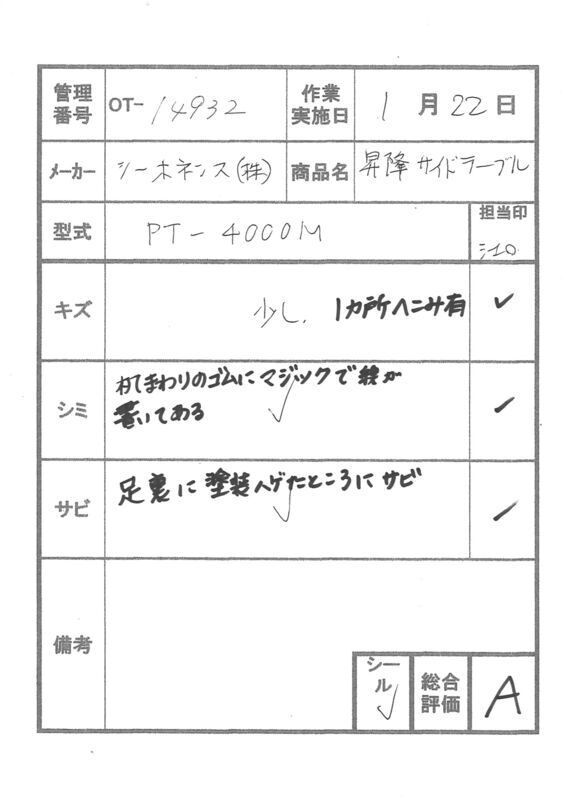 管理番号 OT- 14932 作業実施日 1月22日
メーカー シーホネンス(株) 商品名 昇降サイドテーブル
型式 PT-4000M 担当印
キズ 少し. 1カ所ヘこみ有 ✓
シミ まわりのゴムにマジックで線が ✓
書いてある
サビ 足裏に塗装ハゲたところにサビ ✓
備考
シール ✓ 総合評価 A